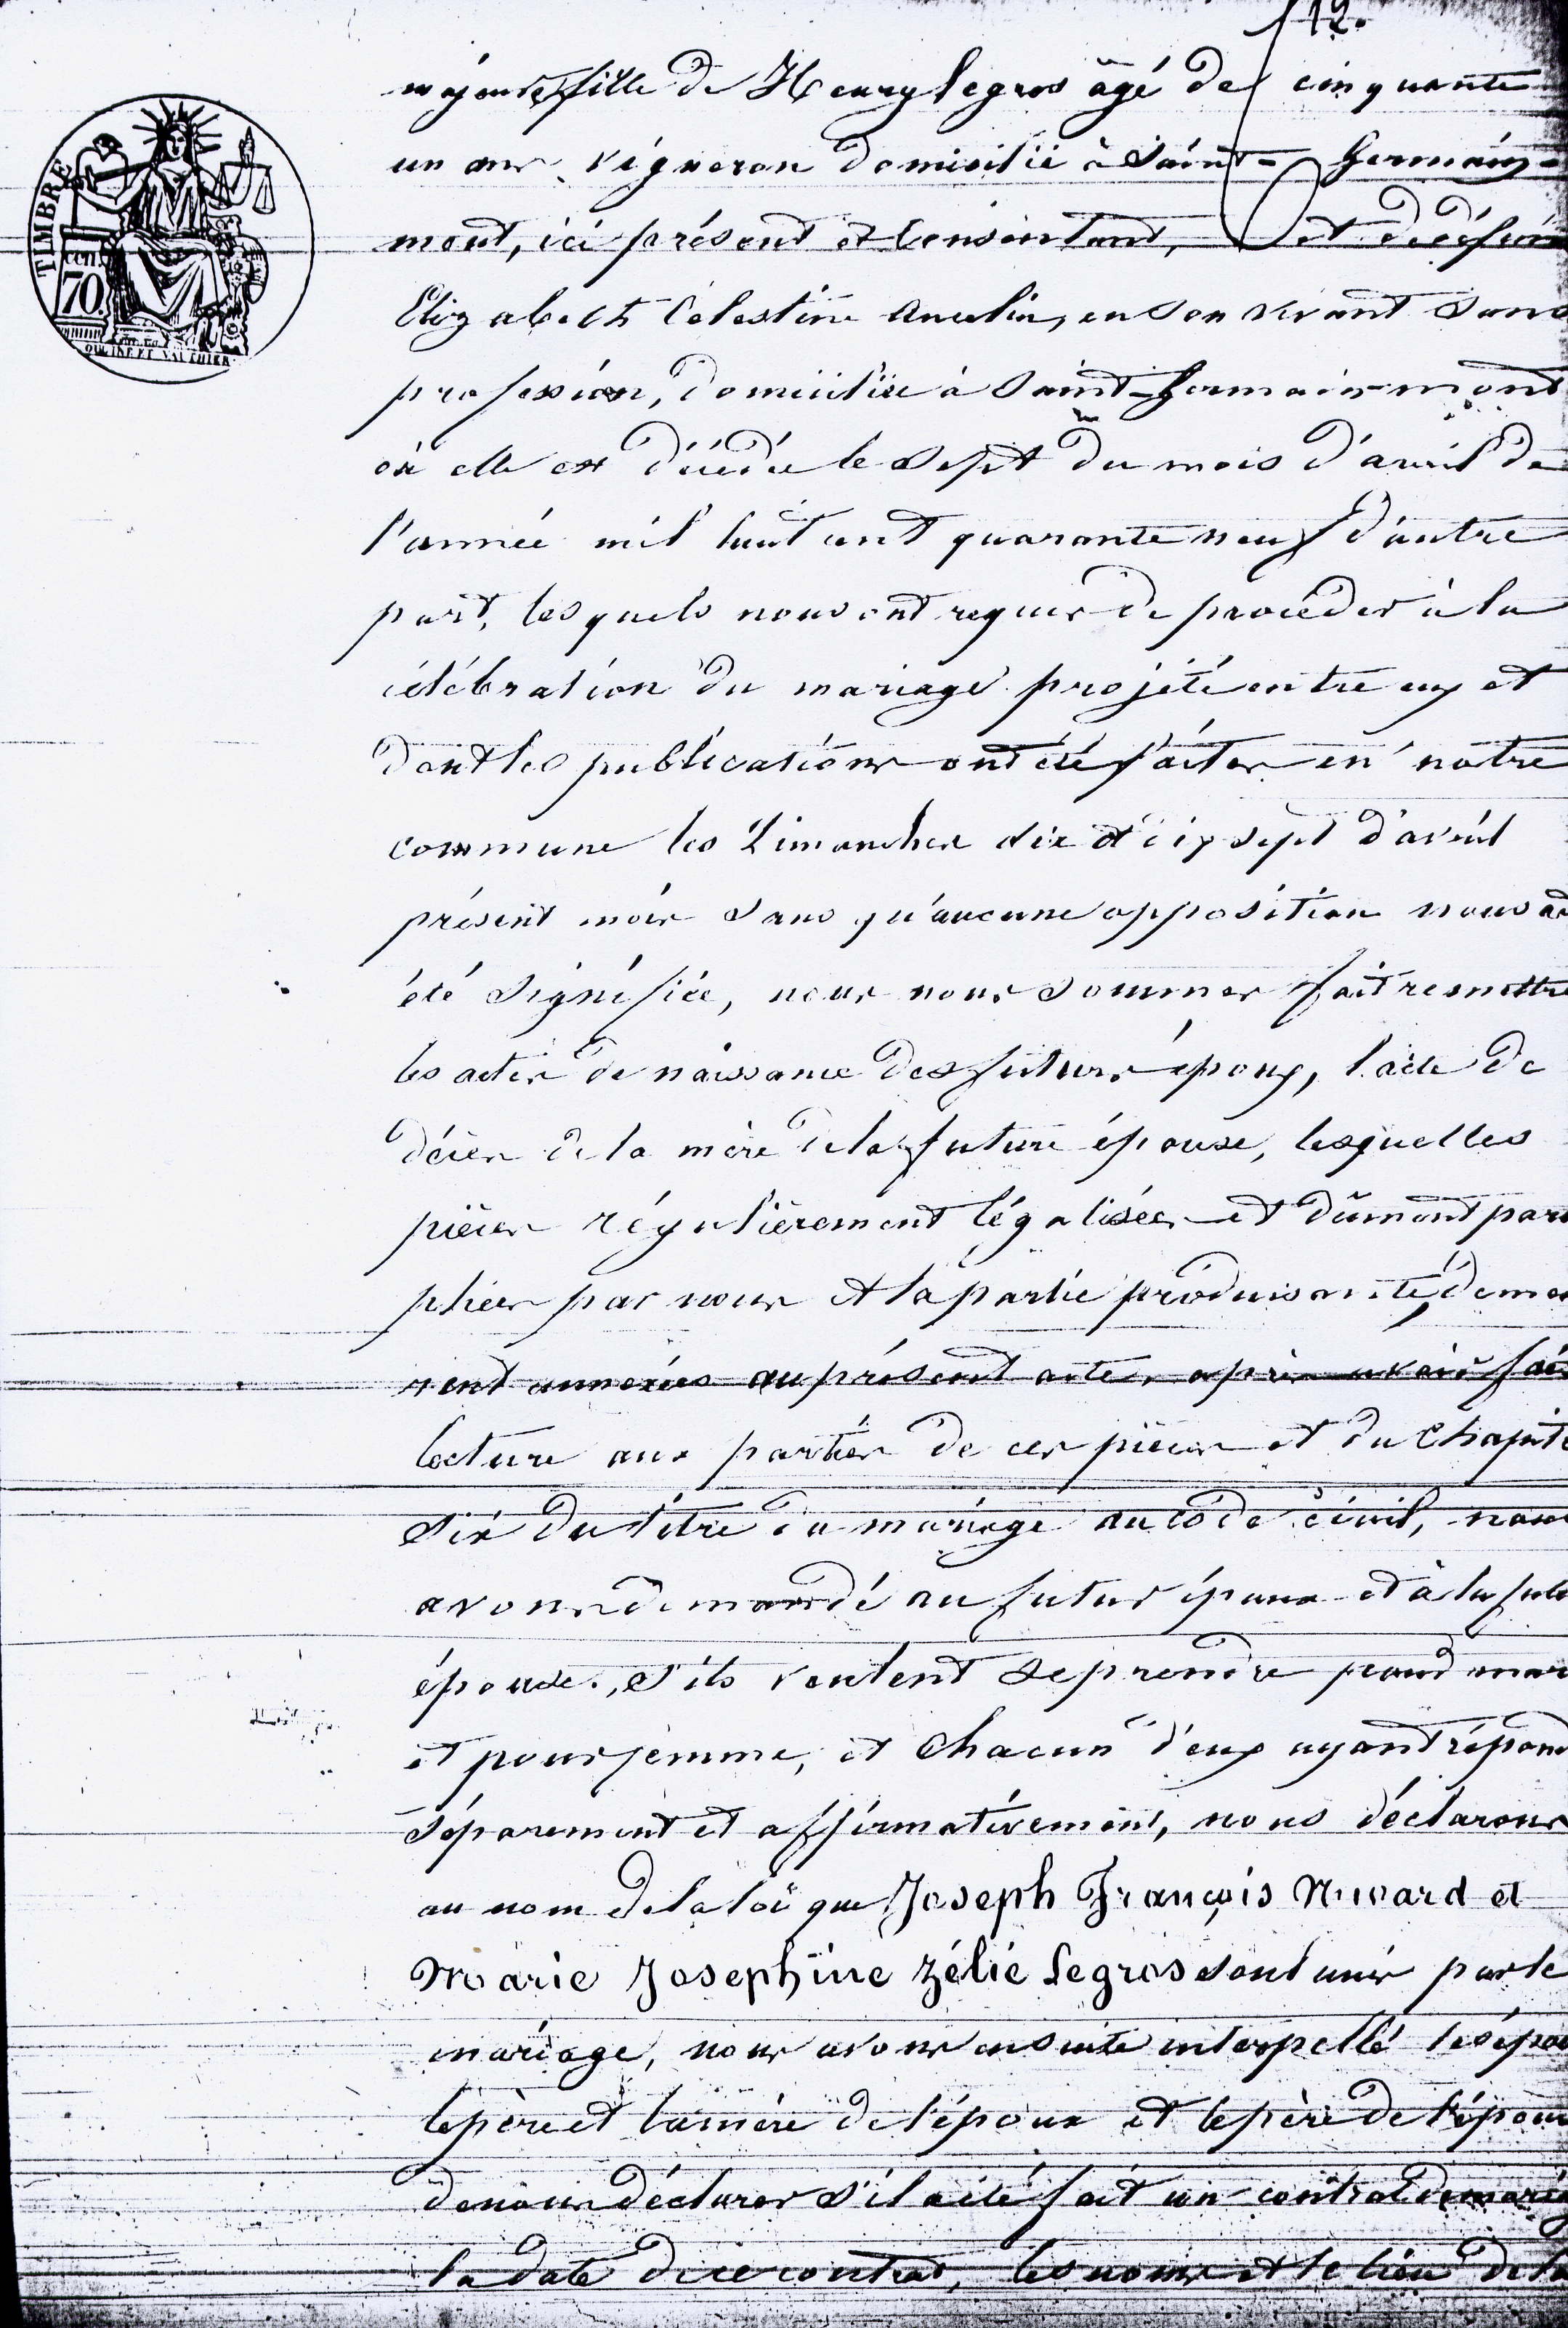 12.
TIMBRE
cen.
70.
majeure, fille de Henry Legros âgé de cinquante
un ans vigneron domicilié à Saint-Germain-
mont, ici présent et consentant, et de défun
Elizabeth Célestine en son vivant sans
profession, domiciliée à Saint-Germain-mont
où elle est décédée le sept du mois d'avril de
l'année mil huit cent quarante neuf d'autre
part, lesquels nous ont requis de procéder à la
célébration du mariage projeté entre eux et
dont les publications ont été faites en notre
commune les Dimanches dix et dix sept d'avril
présent mois sans qu'aucune opposition nous ait
été signifiée, nous nous sommes fait remettre
les actes de naissance des futurs époux, l'acte de
décès de la mère de la future épouse, lesquelles
pièces régulièrement légalisées et dûment para
phées par nous et la partie produisante, demeu
rent annexées au présent acte, après avoir fait
lecture aux parties de ces pièces et du Chapitre
six du titre du mariage du code civil, nous
avons demandé au futur époux et à la future
épouse, s'ils veulent se prendre pour mari
et pour femme, et chacun d'eux ayant répondu
séparement et affirmativement, nous déclarons
au nom de la loi que Joseph François Nivard et
Marie Josephine Zélie Legros sont unis par le
mariage, nous avons ensuite interpellé les époux
le père et la mère de l'époux et le père de l'épouse
de nous déclarer s'il a été fait un contrat de mariage
la date de ce contrat, les noms et le lieu de la